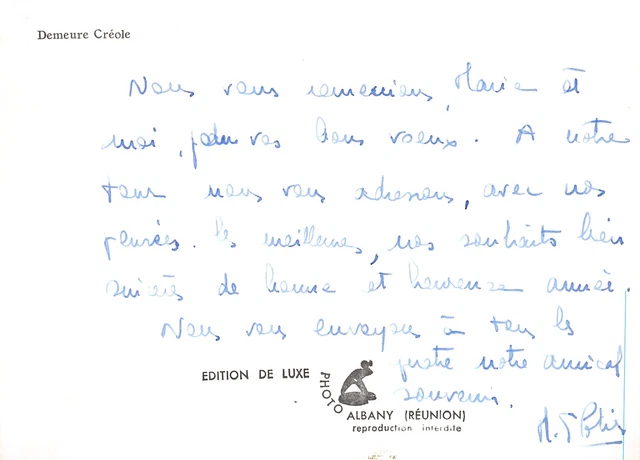 Demeure Créole
Nous vous remercions, Marie et
moi, pour vos bons voeux. A notre
tour nous vous adressons, avec nos
pensées les meilleures, nos souhaits bien
sincères de bonne et heureuse année.
Nous vous envoyons à tous les
quatre notre amical
souvenir.
EDITION DE LUXE
PHOTO
ALBANY (RÉUNION)
reproduction interdite